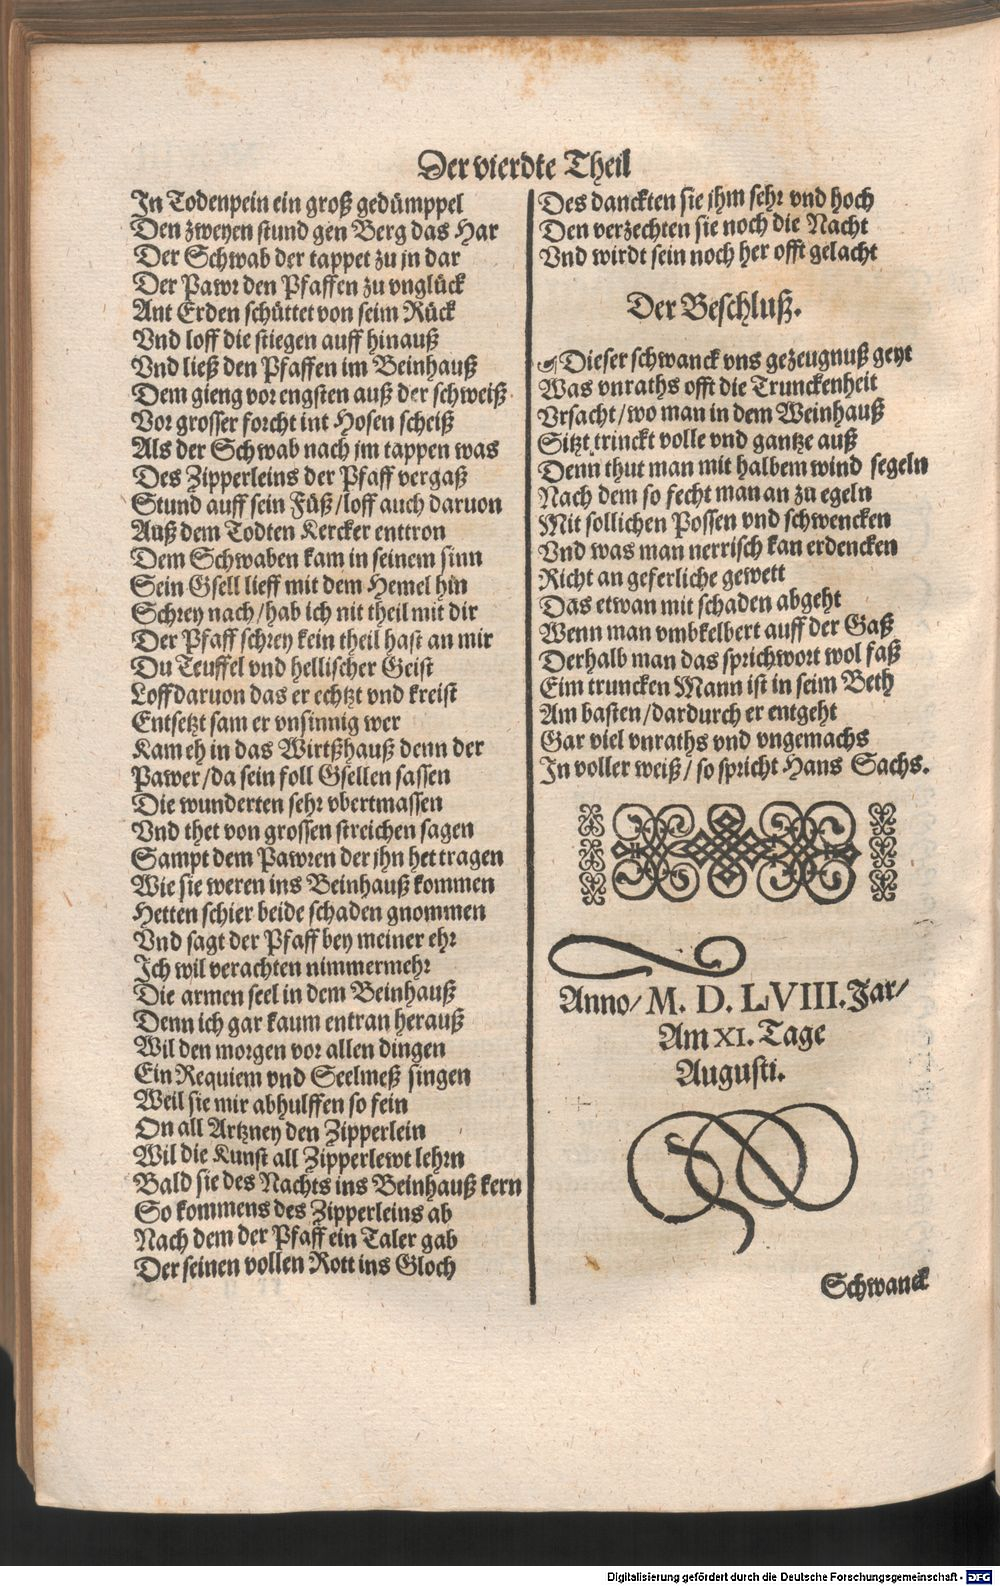 Der vierdte Theil
In Todenpein ein groß gedümppel
Den zweyen stund gen Berg das Har
Der Schwab der tappet zu jn dar
Der Pawr den Pfaffen zu vnglück
Ant Erden schüttet von seim Rück
Vnd loff die stiegen auff hinauß
Vnd ließ den Pfaffen im Beinhauß
Dem gieng vor engsten auß der schweiß
Vor grosser forcht int Hosen scheiß
Als der Schwab nach jm tappen was
Des Zipperleins der Pfaff vergaß
Stund auff sein Füß/loff auch daruon
Auß dem Todten Kercker enttron
Dem Schwaben kam in seinem sinn
Sein Gsell lieff mit dem Hemel hin
Schrey nach/hab ich nit theil mit dir
Der Pfaff schrey kein theil hast an mir
Du Teuffel vnd hellischer Geist
Loff daruon das er echtzt vnd kreist
Entsetzt sam er vnsinnig wer
Kam eh in das Wirtßhauß denn der
Pawer/da sein foll Gsellen sassen
Die wunderten sehr vbertmassen
Vnd thet von grossen streichen sagen
Sampt dem Pawren der jhn het tragen
Wie sie weren ins Beinhauß kommen
Hetten schier beide schaden gnommen
Vnd sagt der Pfaff bey meiner ehr
Ich wil verachten nimmermehr
Die armen seel in dem Beinhauß
Denn ich gar kaum entran herauß
Wil den morgen vor allen dingen
Ein Requiem vnd Seelmeß singen
Weil sie mir abhulffen so fein
On all Artzney den Zipperlein
Wil die Kunst all Zipperlewt lehrn
Bald sie des Nachts ins Beinhauß kern
So kommens des Zipperleins ab
Nach dem der Pfaff ein Taler gab
Der seinen vollen Rott ins Gloch
Des danckten sie jhm sehr vnd hoch
Den verzechten sie noch die Nacht
Vnd wirdt sein noch her offt gelacht
Der Beschluß.
Dieser schwanck vns gezeugnuß geyt
Was vnraths offt die Trunckenheit
Vrsacht/wo man in dem Weinhauß
Sitzt trinckt volle vnd gantze auß
Denn thut man mit halbem wind segeln
Nach dem so fecht man an zu egeln
Mit sollichen Possen vnd schwencken
Vnd was man nerrisch kan erdencken
Richt an geferliche gewett
Das etwan mit schaden abgeht
Wenn man vmbkelbert auff der Gaß
Derhalb man das sprichwort wol faß
Eim truncken Mann ist in seim Beth
Am basten/dardurch er entgeht
Gar viel vnraths vnd vngemachs
In voller weiß/so spricht Hans Sachs.
Anno/ M. D. LVIII. Jar/
Am XI. Tage
Augusti.
Schwanck
Digitalisierung gefördert durch die Deutsche Forschungsgemeinschaft - DFG